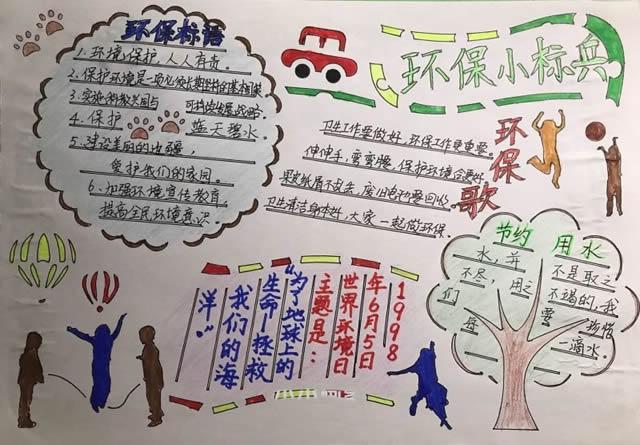 环保标语
1.环境保护，人人有责。
2.保护环境是一项必须长期坚持的基本国策
3.实施科教兴国与 可持续发展战略。
4.保护 蓝天碧水。
5.建设美丽的边疆，
爱护我们的家园。
6.加强环境宣传教育，
提高全民环境意识。
环保小标兵
环保歌
卫生工作要做好，环保工作更重要。
伸伸手，弯弯腰，保护环境会更好。
果皮纸屑不乱丢，废旧电池要回收。
卫生清洁身体好，大家一起做环保。
1998
年6月5日
世界环境日
主题是：
“为了地球上的
生命—拯救
我们的海
洋。”
节约 用水
水，并 不是取之
不尽，用之 不竭的，我
们 要 珍惜
每 一滴水。